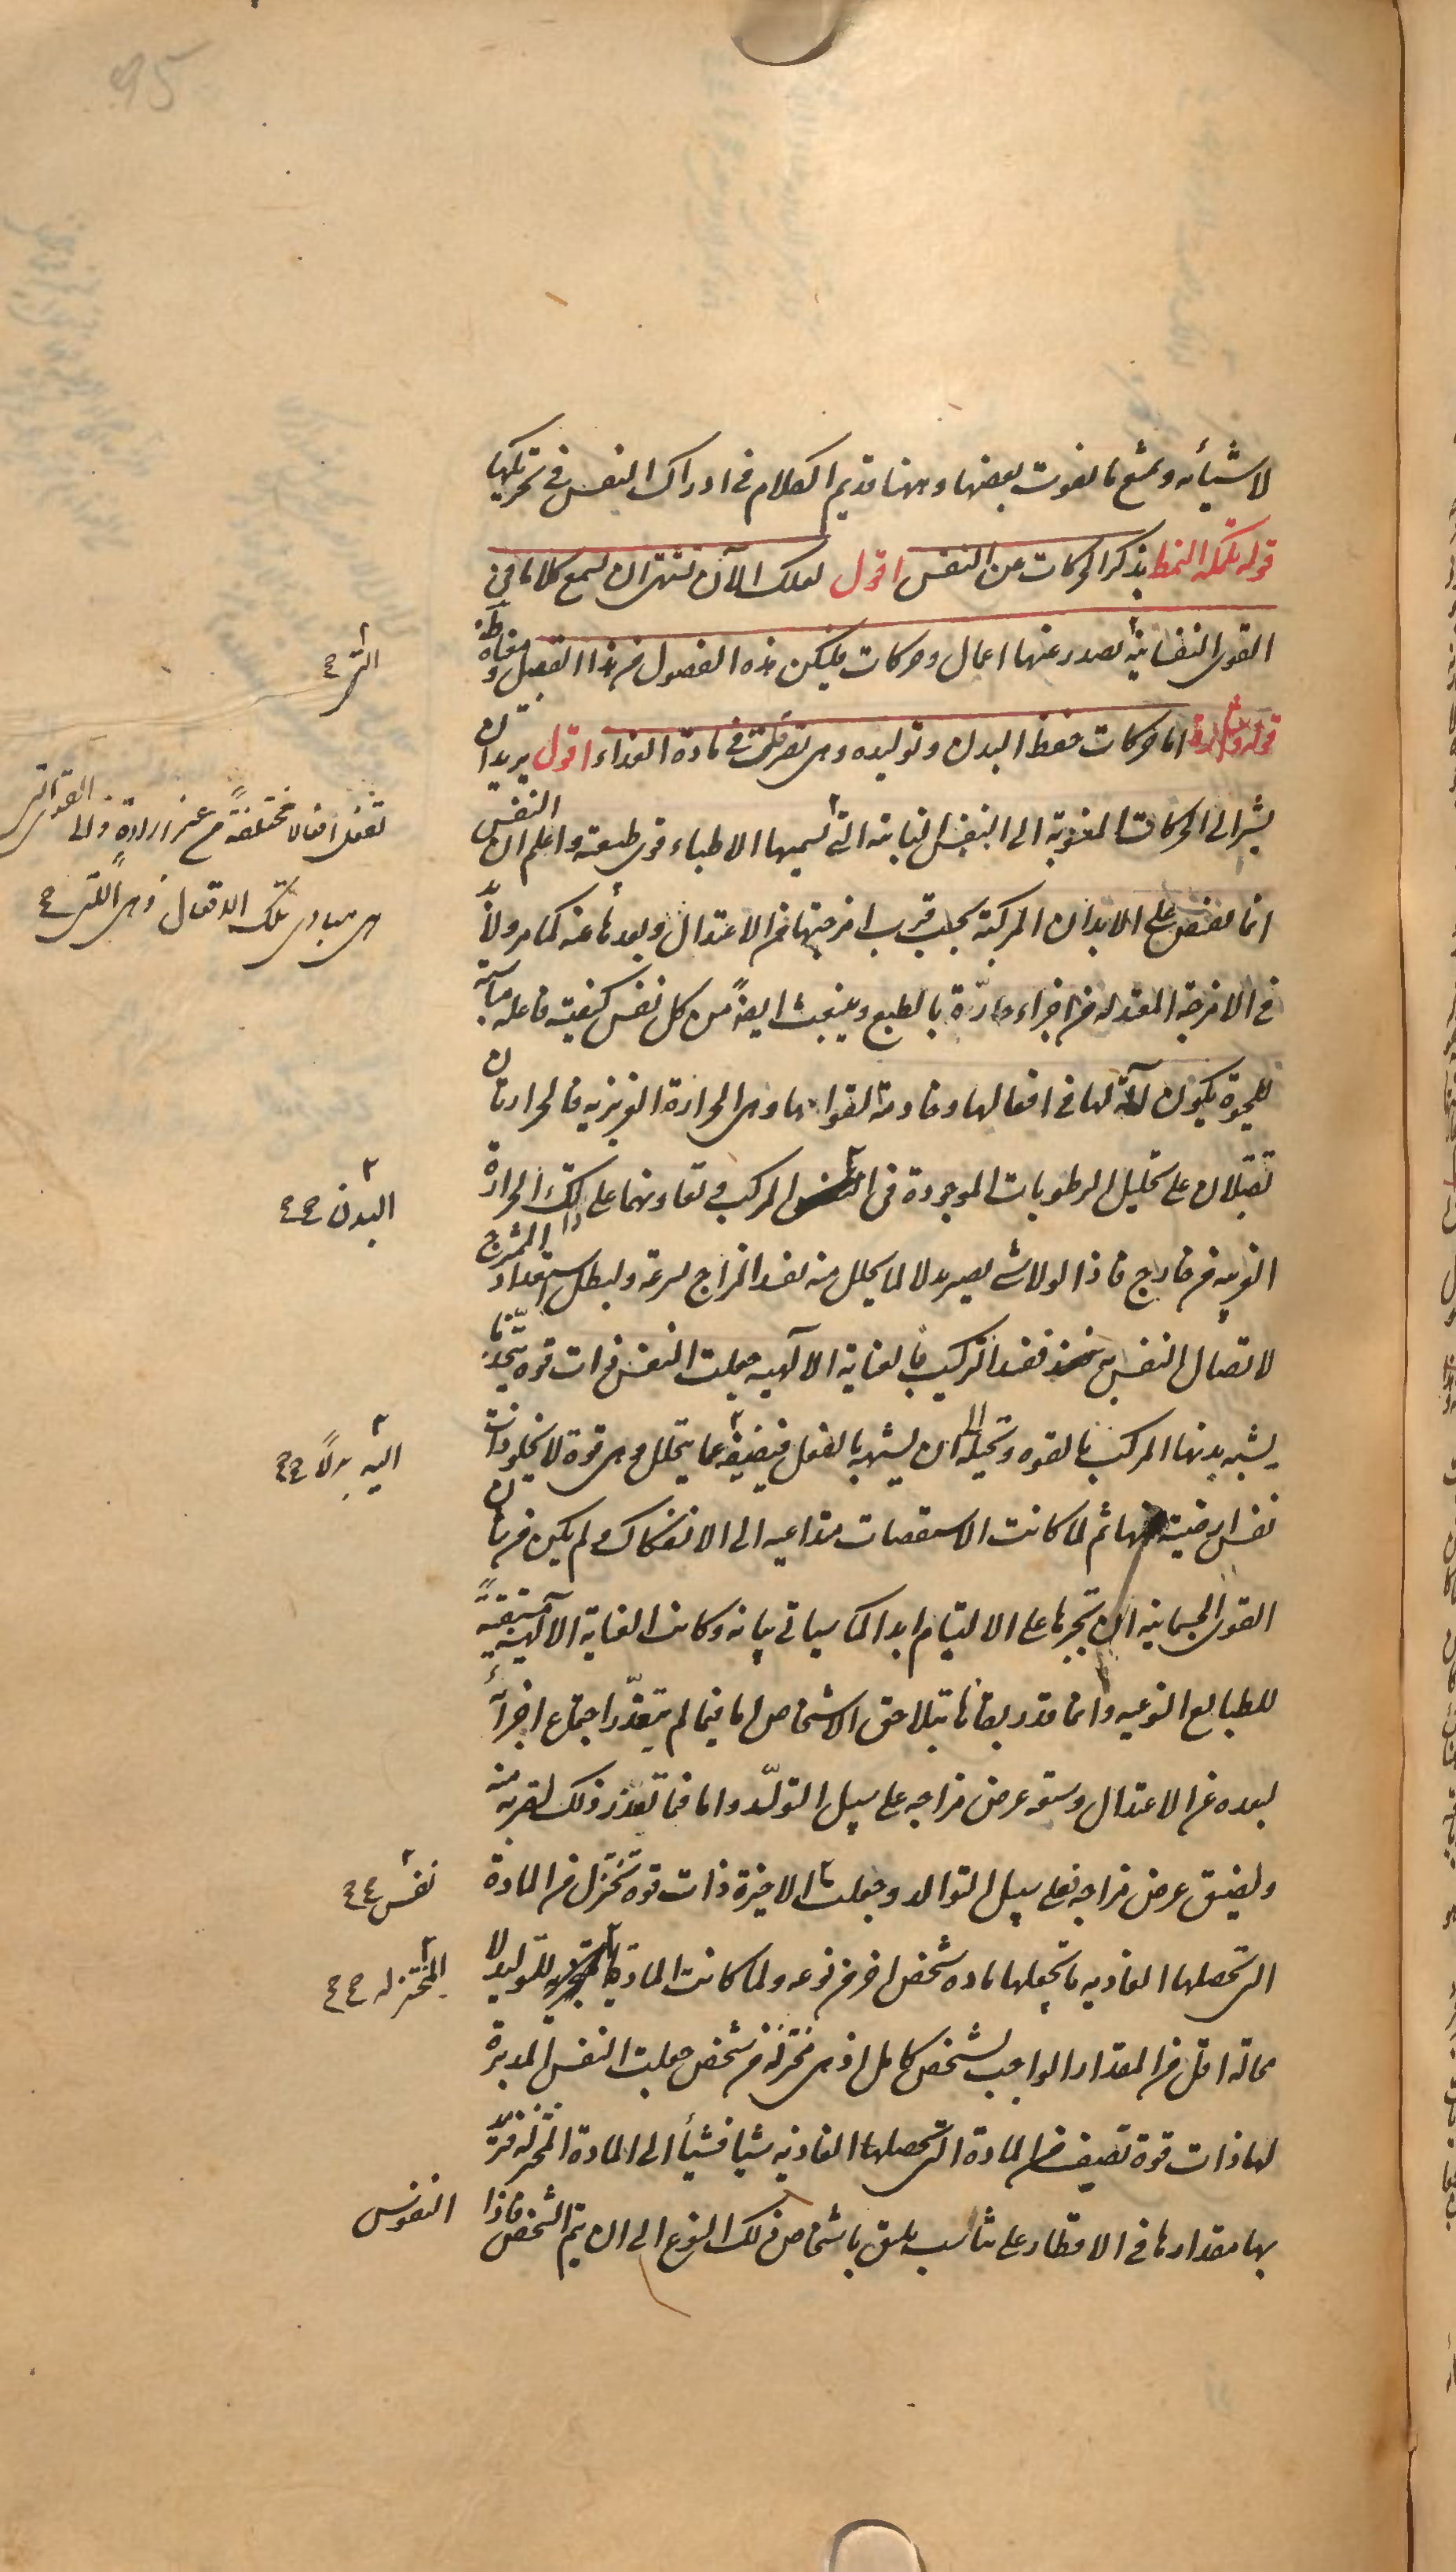 95
لاشيائه ويمتنع ما يفوت بعضها وههنا قد تم الكلام في ادراك النفس في تحريكها
قوله تكملة النمط بذكر الحركات عن النفس اقول لعلك الآن تشتهى ان تسمع كلاما في
القوى النفسانية تصدر عنها اعمال وحركات فليكن هذه الفصول من هذا القبيل
التى
قوله اما حركات حفظ البدن وتوليده وهى تصرفات في مادة الغذاء اقول يريد ان
يشير الى الحركات المنسوبة الى النفس النباتية التى تسميها الاطباء قوى طبيعية واعلم ان النفس
تفعل افعالا مختلفةً من غير ارادة والى القوى التى
هى مبادى تلك الافعال
انما تفيض على الابدان المركبة بحسب قرب امزجتها من الاعتدال وبعدها عنه كما مر ولا بد
في الامزجة المعتدلة من اجزاء حارّة بالطبع وينبعث ايضاً من كل نفس كيفية فاعلة مناسبة
للحيوة يكون آلة لها في افعالها وخادمة لقواها وهى الحرارة الغريزية فالحرارتان
تقبلان على تحليل الرطوبات الموجودة في المركب وتعاونهما على ذلك الحرارة
البدن
الغريبة من خارج فاذا لولا شئ يصير بدلا لما يتحلل منه لفسد المزاج بسرعة ولبطل استعداد الممتزج
لاتصال النفس به ففسد التركيب فالعناية الالهية جعلت النفس ذات قوة تتخذ ما
يشبه بدنها المركب بالقوه وتحيله الى ان يشبهه بالفعل فتضيفه عما يتحلل وهى قوة لا يخلو ذات
اليه بدلاً
نفس ارضية عنها ثم لما كانت الاسطقسات متداعية الى الانفكاك ولم يكن من شان
القوى الجسمانية ان تجبرها على الالتيام ابدا كما سياتي بيانه وكانت العناية الالهية مستبقيةً
للطبايع النوعيه دائما قدر بقاءها بتلاحق الاشخاص اما فيما لم يتعذّر اجتماع اجزائه
لبعده عن الاعتدال وسعة عرض مزاجه على سبيل التولّد واما فيما تعذر ذلك لقربه منه
ولضيق عرض مزاجه فعلى سبيل التوالد وجعلت الاخيرة ذات قوة تختزل من المادة
نفس
التى تحصلها الغاذيه ما تجعلها مادة شخص اخر من نوعه ولما كانت المادة للتوليد لا
المختزله
محالة اقل من المقدار الواجب لشخص كامل اذ هى مختزلة من شخص جعلت النفس المدبرة
لها ذات قوة تضيف من المادة التى تحصلها الغاذيه شيئا فشيئا الى المادة المختزلة فيزيد
بها مقدارها في الاقطار على تناسب يليق باشخاص ذلك النوع الى ان يتم الشخص فاذا
النفوس